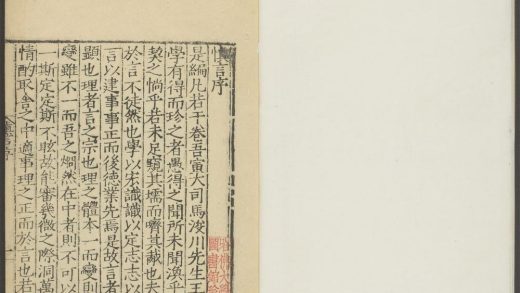 慎言序
是編凡若干卷吾寅大司馬浚川先生王
學有得而珍之者愚得之聞所未聞渙乎
契之惝乎若未足窺其壖而嚌其胾也夫
於言不徒然也學以求識識以定志志以
言以建事事正而後德業先焉是故言者
顯也理者言之宗也理之體本一而變則
變雖不一而吾之烱然在中者則不可以
一斯定定斯不眩故能審幾微之際洞萬
情酌取舍之中適事理之正而於言也若
慎言序